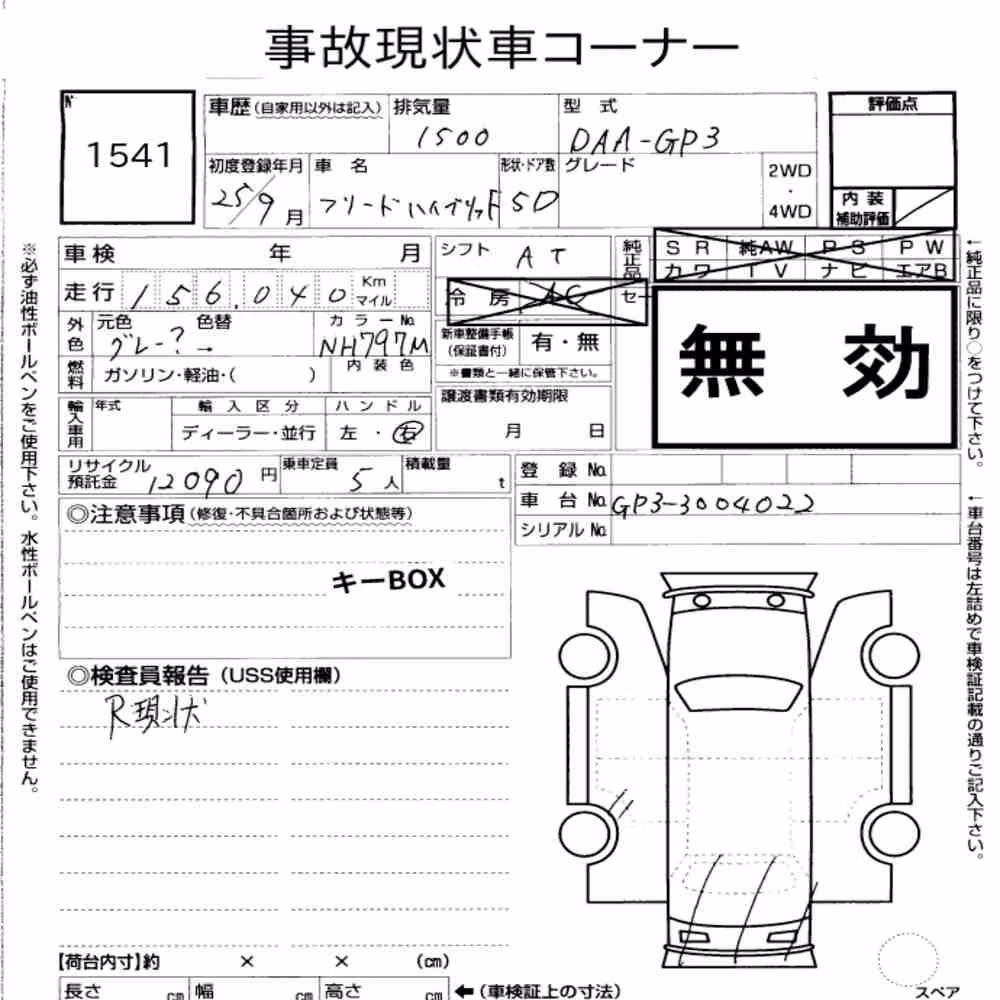 事故現状車コーナー
No.
1541
車歴(自家用以外は記入)
排気量
1500
型 式
DAA-GP3
評価点
初度登録年月
25/9月
車 名
フリードハイブリッド
形状・ドア数
5D
グレード
2WD
・
4WD
内 装
補助評価
車検 年 月
シフト
AT
純正品
SR 純AW PS PW
カワ TV ナビ エアB
走行 156.040 Km マイル
冷 房 AC
セー
外色
元色 色替
グレー? →
カラーNo.
NH797M
新車整備手帳
(保証書付)
有・無
※書類と一緒に保管下さい。
無 効
燃料
ガソリン・軽油・( )
内 装 色
譲渡書類有効期限
月 日
輸入車用
年式
輸 入 区 分
ディーラー・並行
ハ ン ド ル
左・右
リサイクル
預託金 12090 円
乗車定員
5人
積載量
t
登 録 No.
車 台 No. GP3-3004022
シリアル No.
◎注意事項(修復・不具合箇所および状態等)
キーBOX
◎検査員報告(USS使用欄)
R現状
【荷台内寸】約 × × (cm)
長さ cm 幅 cm 高さ cm ←(車検証上の寸法)
スペア
※必ず油性ボールペンをご使用下さい。水性ボールペンはご使用できません。
←純正品に限り○をつけて下さい。
←車台番号は左詰めで車検証記載の通りご記入下さい。